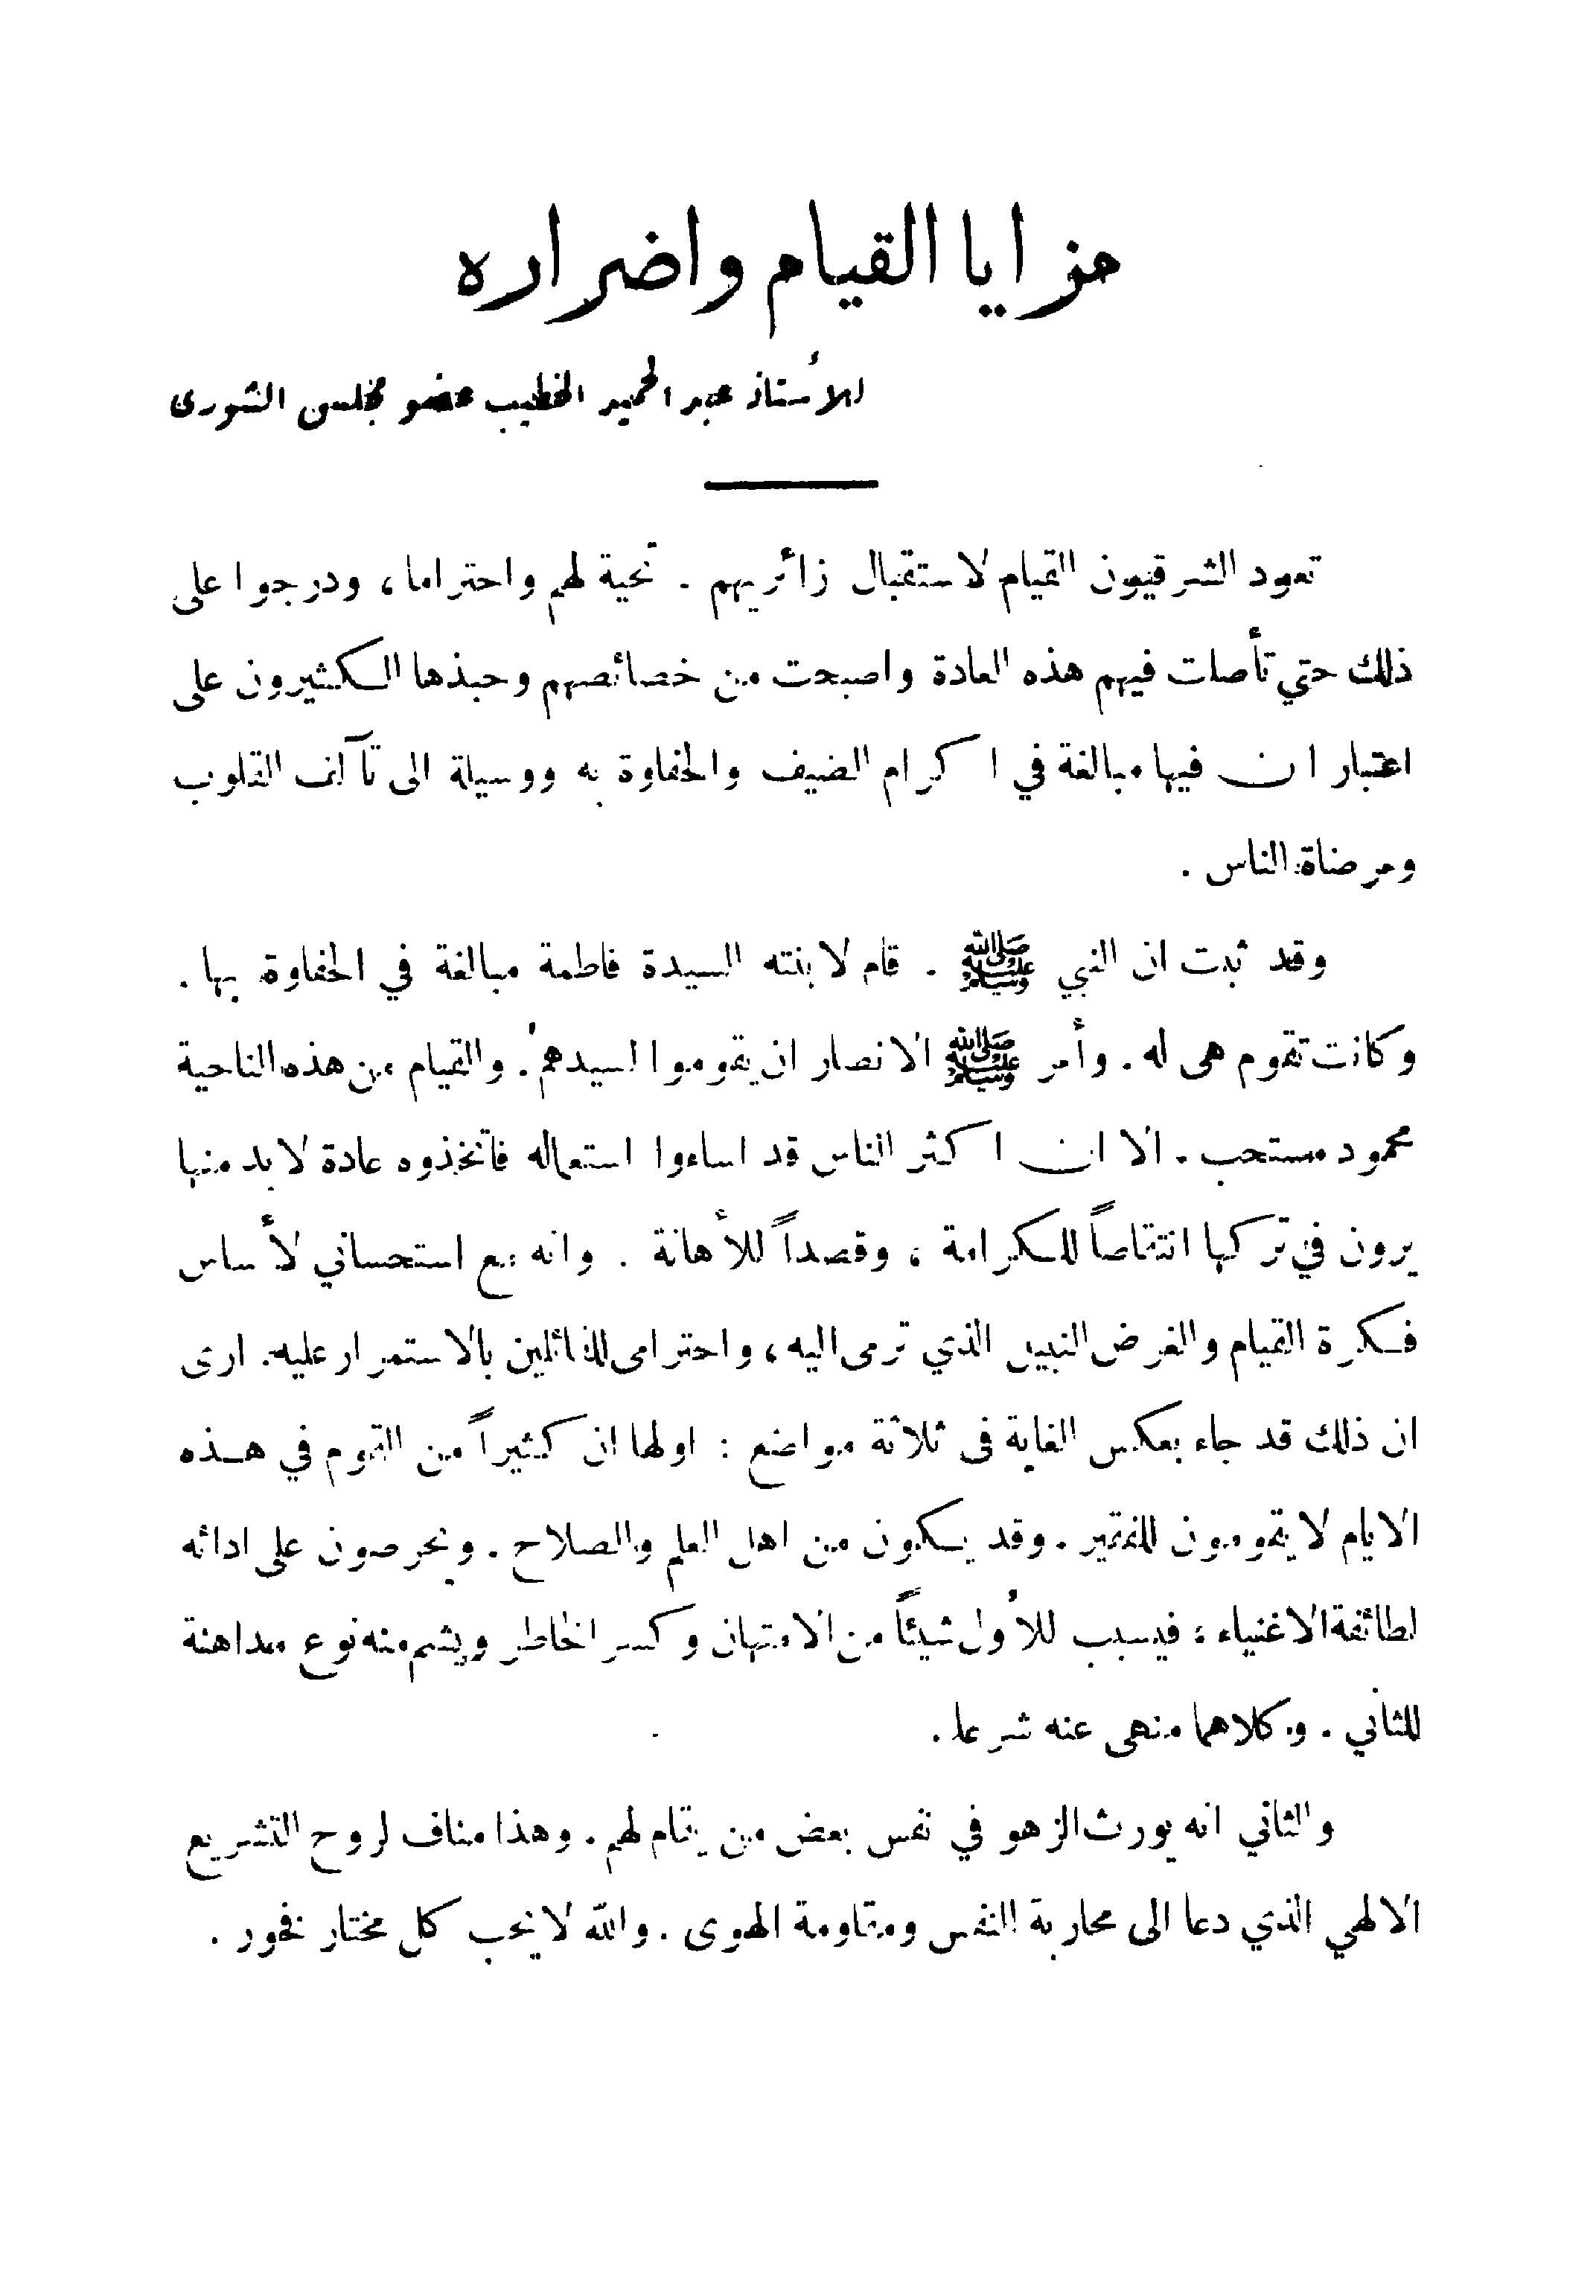 مزايا القيام واضراره
للأستاذ عبد الحميد الخطيب عضو مجلس الشورى
تعود الشرقيون القيام لاستقبال زائريهم . تحية لهم واحتراما ، ودرجوا على
ذلك حتي تأصلت فيهم هذه العادة واصبحت من خصائصهم وحبذها الكثيرون على
اعتبار ان فيها مبالغة في اكرام الضيف والحفاوة به ووسيلة الى تآلف القلوب
ومرضاة الناس .
وقد ثبت ان النبي ﷺ . قام لابنته السيدة فاطمة مبالغة في الحفاوة بها .
وكانت تقوم هى له . وأمر ﷺ الانصار ان يقوموا لسيدهم . والقيام من هذه الناحية
محمود مستحب . الا ان اكثر الناس قد اساءوا استعماله فاتخذوه عادة لابد منها
يرون في تركها انتقاصاً للكرامة ، وقصداً للأهانة . وانه مع استحساني لأساس
فكرة القيام والغرض النبيل الذي ترمى اليه ، واحترامى للقائلين بالاستمرار عليه . ارى
ان ذلك قد جاء بعكس الغاية فى ثلاثة مواضع : اولها ان كثيراً من القوم في هذه
الايام لا يقومون للفقير . وقد يكون من اهل العلم والصلاح . ويحرصون على ادائه
لطائفة الاغنياء ؛ فيسبب للأول شيئاً من الامتهان وكسر الخاطر ويشم منه نوع مداهنة
للثاني . وكلاهما منهى عنه شرعا .
والثاني انه يورث الزهو في نفس بعض من يقام لهم . وهذا مناف لروح التشريع
الالهي الذي دعا الى محاربة النفس ومقاومة الهوى . والله لا يحب كل مختار فخور .